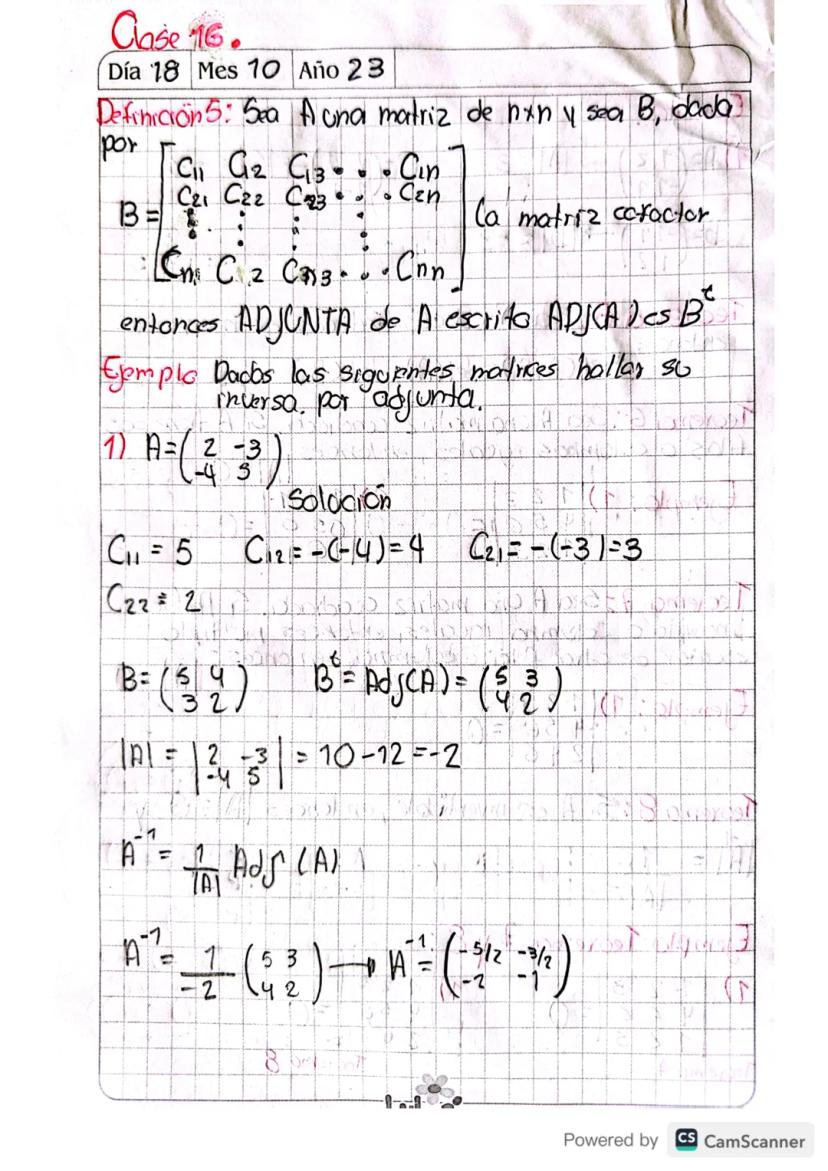 Clase 16.
Día 18 Mes 10 Año 23
Definición 5: Sea A una matriz de n×n y sea B, dada
por
B = [C11 C12 C13 . . . C1n
C21 C22 C23 . . . C2n
⋮ ⋮ ⋮ ⋮
Cn1 Cn2 Cn3 . . . Cnn] la matriz cofactor
entonces ADJUNTA de A escrito ADJ(A) es B^t
Ejemplo Dados las siguentes matrices hallar su
inversa. por adjunta.
1) A = (2 -3
-4 5)
Solución
C11 = 5 C12 = -(-4) = 4 C21 = -(-3) = 3
C22 = 2
B = (5 4
3 2) B^t = Adj(A) = (5 3
4 2)
|A| = |2 -3
-4 5| = 10 - 12 = -2
A^-1 = 1/|A| Adj (A)
A^-1 = 1/-2 (5 3
4 2) → A^-1 = (-5/2 -3/2
-2 -1)
Powered by CS CamScanner